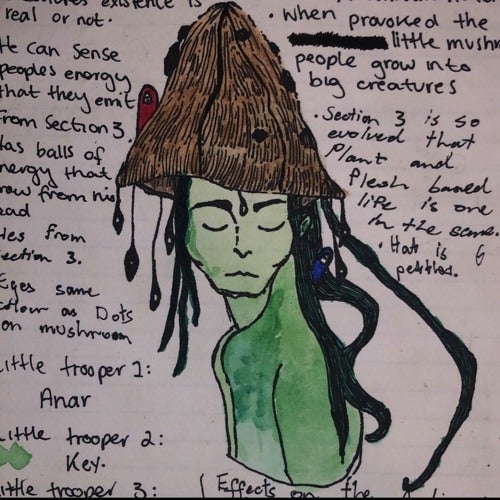 existence is
real or not.
He can sense
peoples energy
that they emit
From Section 3.
Has balls of
energy that
grow from his
head
Hes from
Section 3.
Eyes same
colour as Dots
on mushroom
Little trooper 1:
Anar
Little trooper 2:
Key.
Little trooper 3:
• When provoked the
little mushroom
people grow into
big creatures
• Section 3 is so
evolved that
Plant and
Flesh based
life is one
in the same.
• Hat is
petrified.
Effects on the